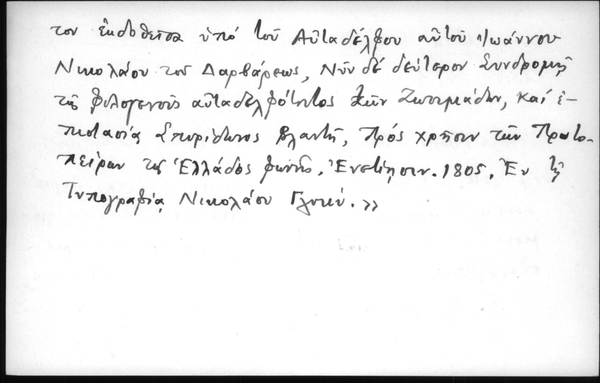 τον ἐκδοθεῖσα ὑπό τοῦ Αὐταδέλφου αὐτοῦ Ἰωάννου
Νικολάου τοῦ Δαρβάρεως, Νῦν δέ δεύτερον Συνδρομῇ
τῆς φιλογενοῦς αὐταδελφότητος τῶν Ζωσιμιάδων, καί ἐ-
πιστασίᾳ Σπυρίδωνος Βλαντῆ, Πρός χρῆσιν τῶν Πρωτο-
πείρων τῆς Ἑλλάδος φωνῆς. Ἐνετίῃσιν. 1805. Ἐν τῇ
Τυπογραφίᾳ Νικολάου Γλυκύ. »